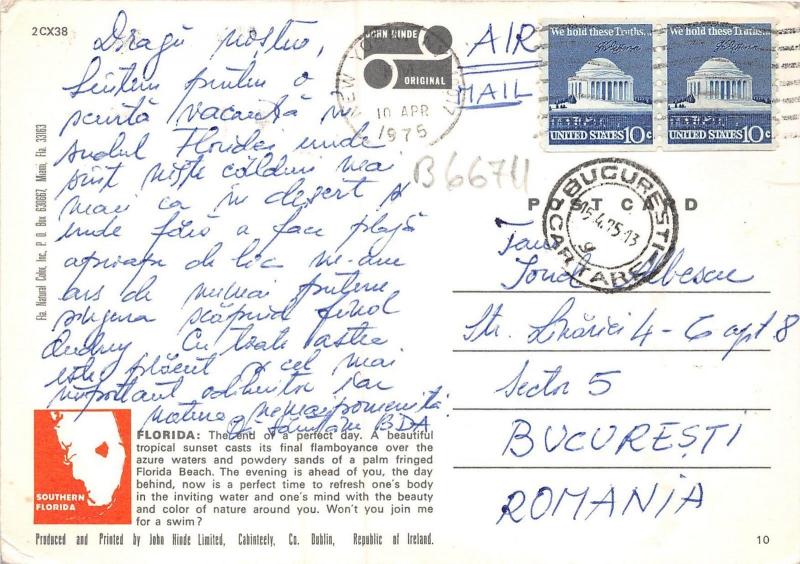 2CX38
Dragii noștri,
Sîntem pentru o
scurtă vacanță în
sudul Floridei unde
sînt niște călduri mai
mari ca în deșert și
unde fără a face plajă
aproape de loc ne-am
ars de
singura scăpînd fiind
Audrey Cu toate astea
este plăcut și cel mai
important odihnitor iar
natura nemaipomenită
Vă sărutăm BDA
JOHN HINDE
ORIGINAL
NEW YORK
10 APR
1975
AIR
MAIL
We hold these Truths...
UNITED STATES 10c
We hold these Truths...
UNITED STATES 10c
B66711
POST CARD
BUCUREȘTI
CARTARE
Fam
Str. Linăriei 4-6 apt 8
Sector 5
BUCUREȘTI
ROMANIA
Fla. Natural Color, Inc., P. O. Box 630667, Miami, Fla. 33163
SOUTHERN
FLORIDA
FLORIDA: The end of a perfect day. A beautiful
tropical sunset casts its final flamboyance over the
azure waters and powdery sands of a palm fringed
Florida Beach. The evening is ahead of you, the day
behind, now is a perfect time to refresh one's body
in the inviting water and one's mind with the beauty
and color of nature around you. Won't you join me
for a swim?
Produced and Printed by John Hinde Limited, Cabinteely, Co. Dublin, Republic of Ireland.
10